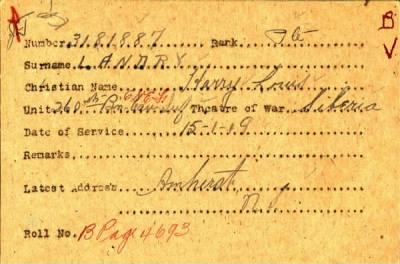 A B
V
Number 3181887 Rank Pte
Surname LANDRY
Christian Name Harry Louis
Unit 260th Bn Theatre of War Siberia
Date of Service 15-1-19
Remarks
Latest Address Amherst
N.S.
Roll No. B Page 4693